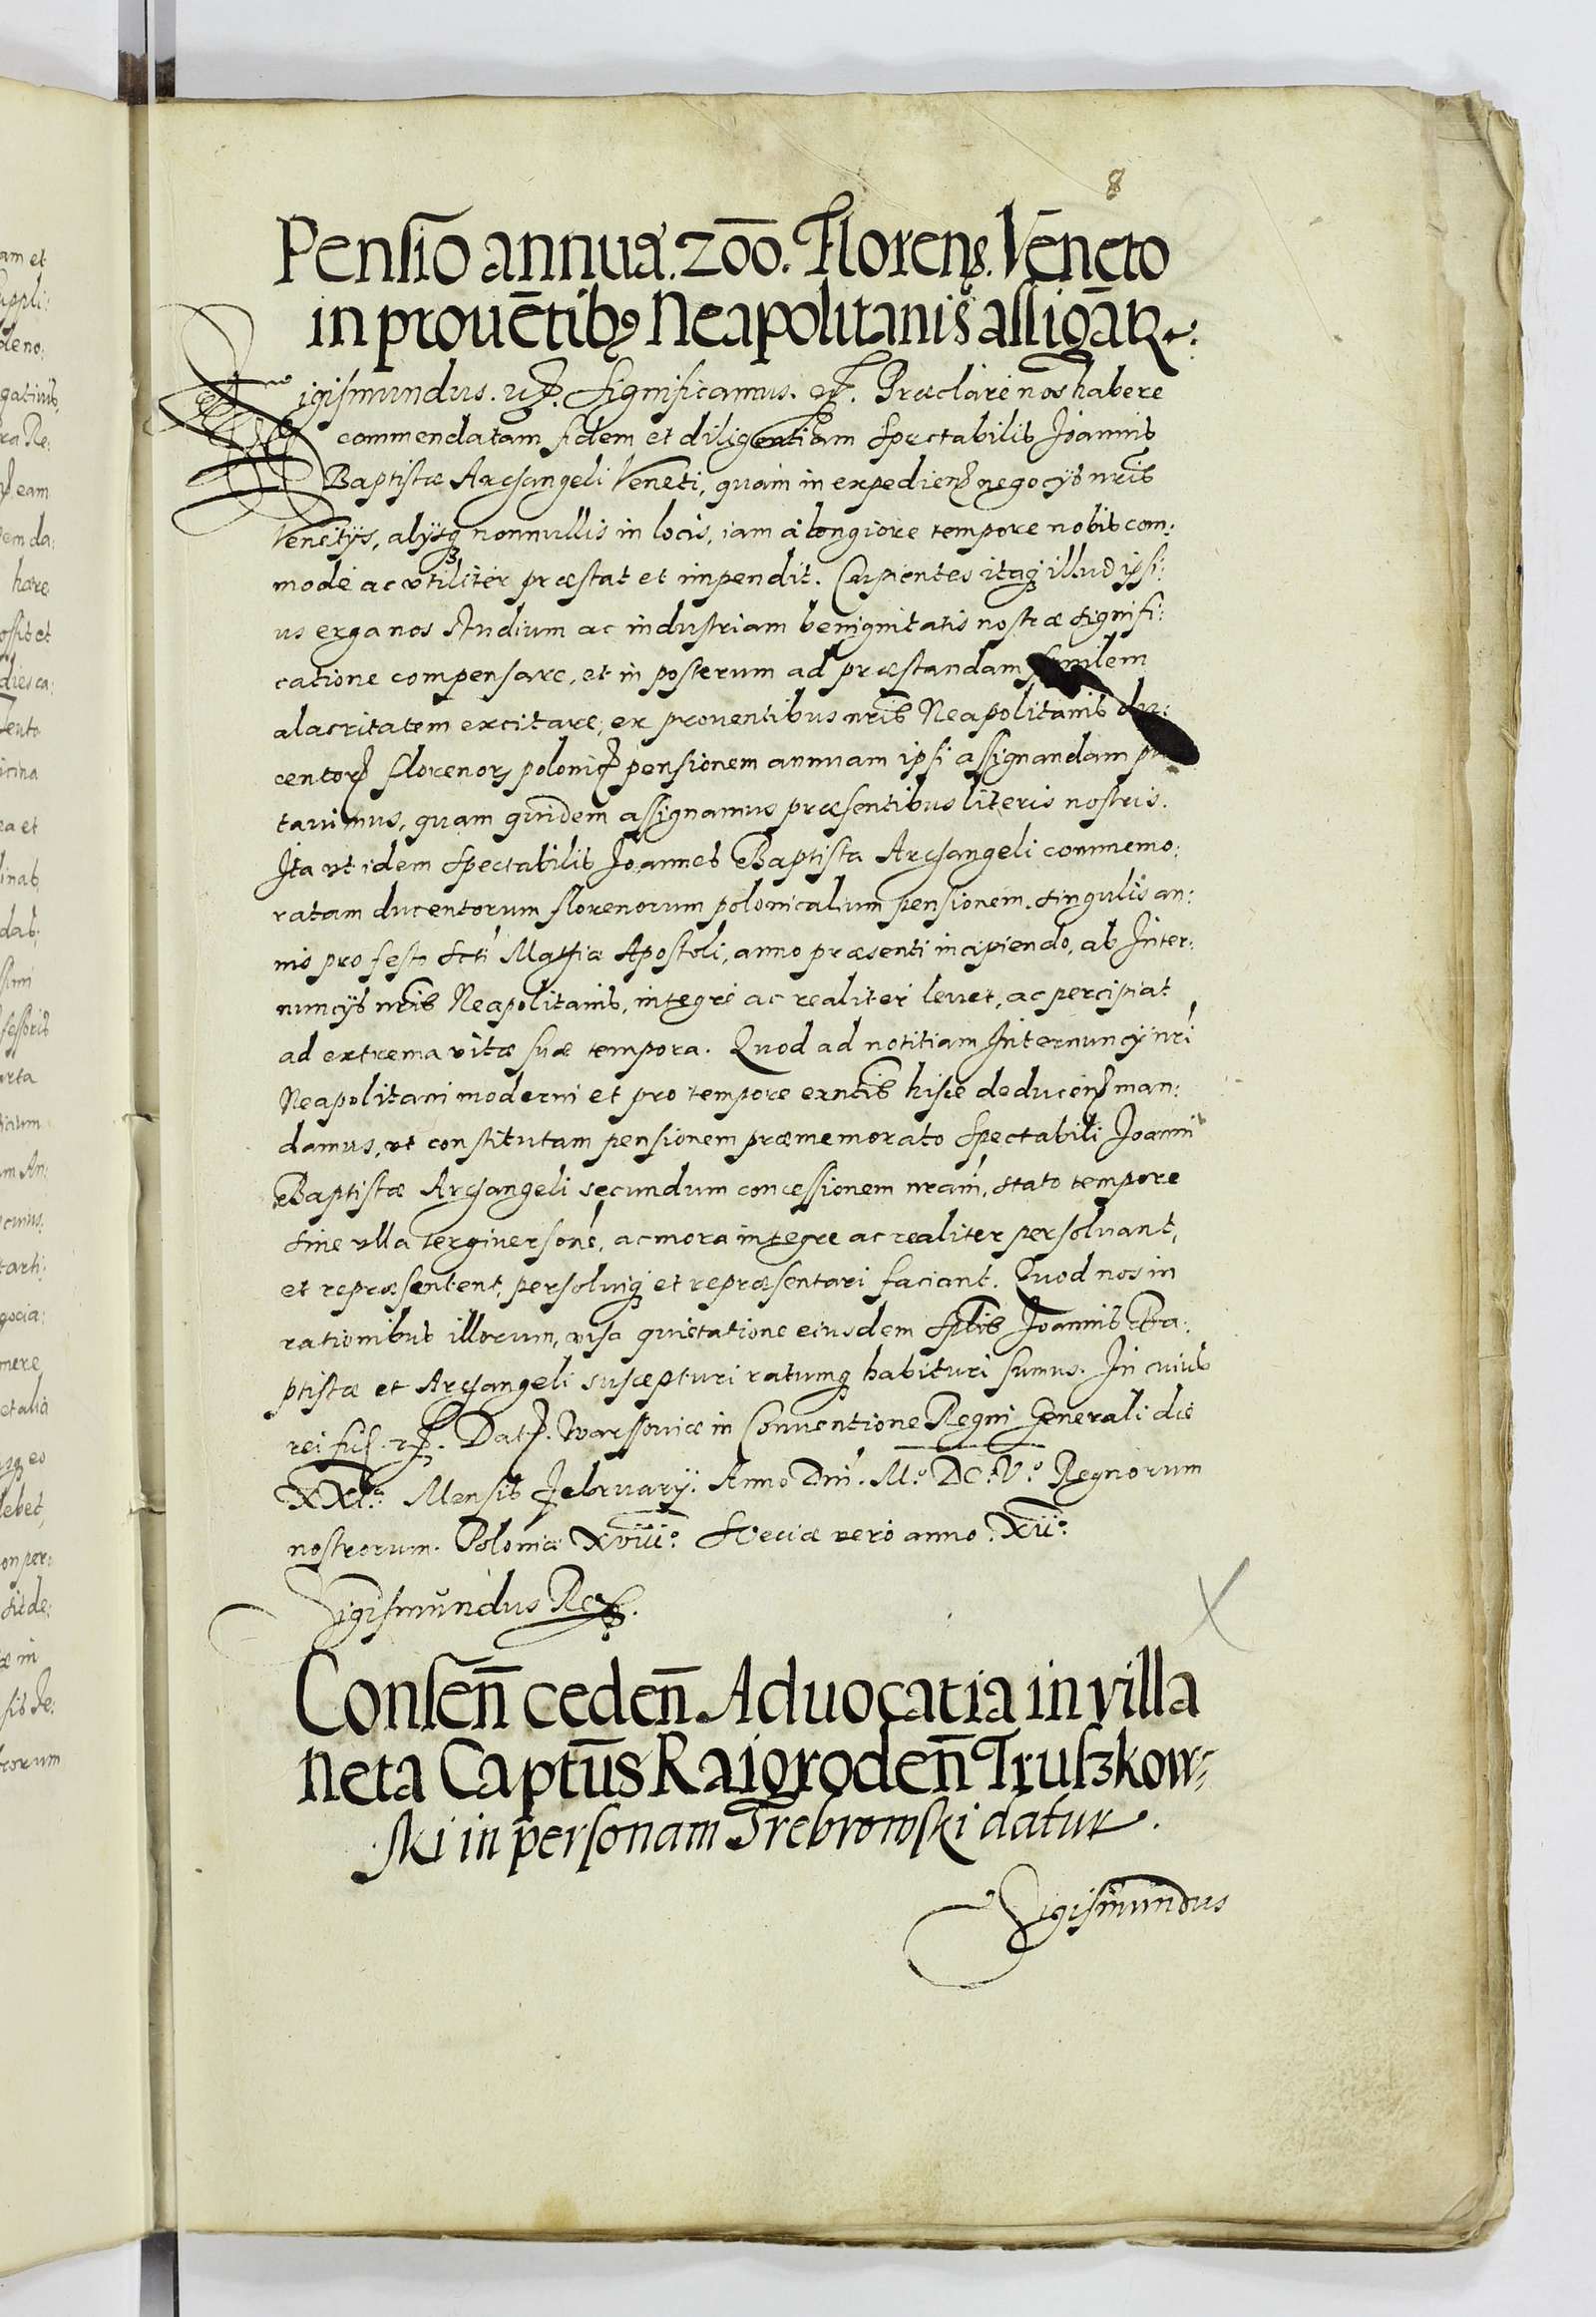 8
Pensio annua. 200. Floren. Veneto
in prouētibꝰ Neapolitanis assigāt
Sigismundus. Significamus. Præclare nos habere
commendatam fidem et diligentiam spectabilis Joannis
Baptistæ Archangeli Veneti, quam in expedien negocÿs nrīs
Venetÿs, alÿsq nonnullis in locis, iam à longiore tempore nobis com:
mode ac vtiliter præstat et impendit. Cupientes itaq illud ipsi:
us erga nos studium ac industriam benignitatis nostræ signifi:
catione compensare, et in posterum ad præstandam similem
alacritatem excitare, ex prouentibus nrīs Neapolitanis du:
centor florenor polonic pensionem annuam ipsi assignandam pu
tauimus, quam quidem assignamus præsentibus literis nostris.
Ita vt idem spectabilis Joannes Baptista Archangeli commemo:
ratam ducentorum florenorum polonicalium pensionem singulis an:
nis pro festo scti Mathiæ Apostoli, anno præsenti incipiendo, ab Inter:
nuncÿs nrīs Neapolitanis, integrè ac realiter leuet, ac percipiat
ad extrema vitæ suæ tempora. Quod ad notitiam Internuncÿ nrī
Neapolitani moderni et pro tempore exntīs hisce deducen man:
damus, vt constitutam pensionem præmemorato spectabili Joanni
Baptistæ Archangeli secundum concessionem nram, stato tempore
sine vlla tergiuersone, ac mora integre ac realiter persoluant,
et repræsentent, persoluiq et repræsentari faciant. Quod nos in
rationibus illorum, visa quietatione eiusdem splīs Joannis Ba:
ptistæ et Archangeli suscepturi ratumq habituri sumus. In cuius
rei fid. Dat. Warssouiæ in Conuentione Regni Generali die
XXI.a Mensis Februarÿ. Anno Dni. M.o DC.o V.o Regnorum
nostrorum. Poloniæ XVIII.o Sueciæ vero anno XII.o
Sigismundus Rex.
Consen̄ ceden̄. Aduocatia in villa
Neta Captus Raigroden̄ Truszkow:
ski in personam Trebrowski datur.
Sigismundus